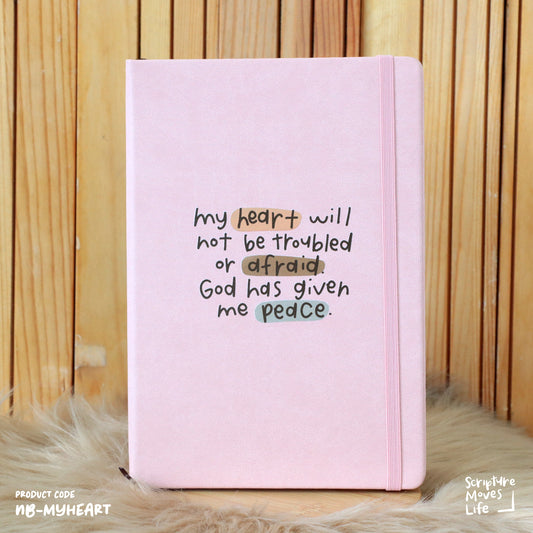 my heart will
not be troubled
or afraid.
God has given
me peace.
PRODUCT CODE
NB-MYHEART
Scripture
Moves
Life